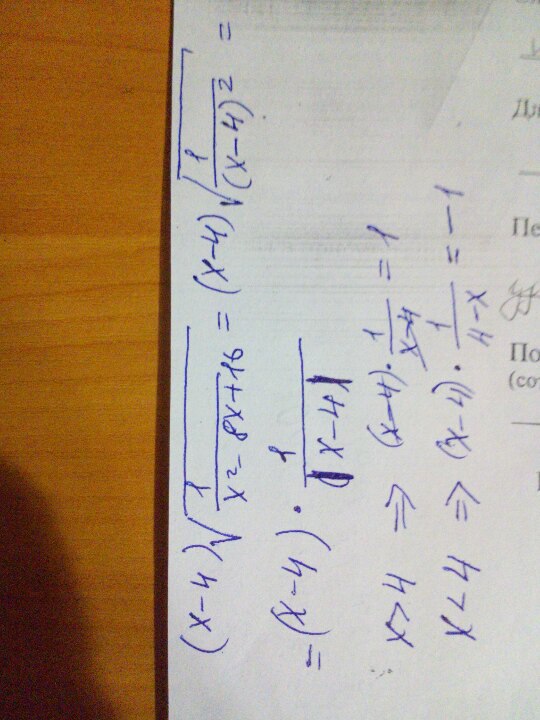 (x-4)√(1/(x²-8x+16)) = (x-4)√(1/(x-4)²) =
= (x-4) · 1/|x-4|
x>4 ⇒ (x-4) · 1/(x-4) = 1
x<4 ⇒ (x-4) · 1/(4-x) = -1
Пе
По
(со